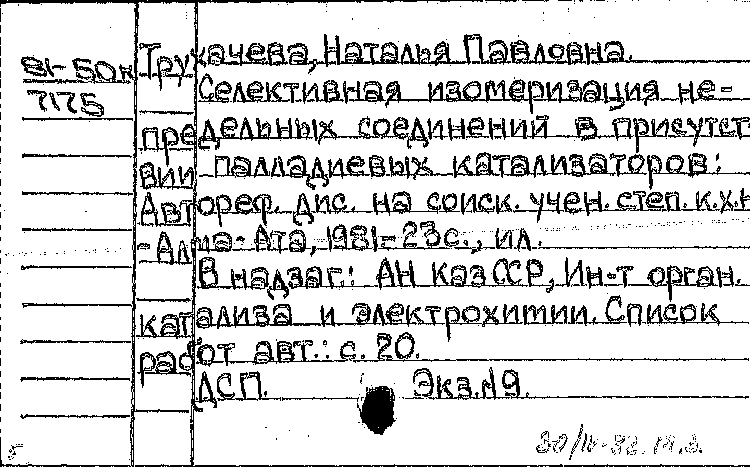 81-50к
7175
Трухачева, Наталья Павловна.
Селективная изомеризация не-
предельных соединений в присутст-
вии палладиевых катализаторов:
Автореф. дис. на соиск. учен. степ. к.х.н
-Алма-Ата, 1981-23с., ил.
В надзаг.: АН КазССР, Ин-т орган.
катализа и электрохимии. Список
работ авт.: с. 20.
ДСП. Экз.№9.